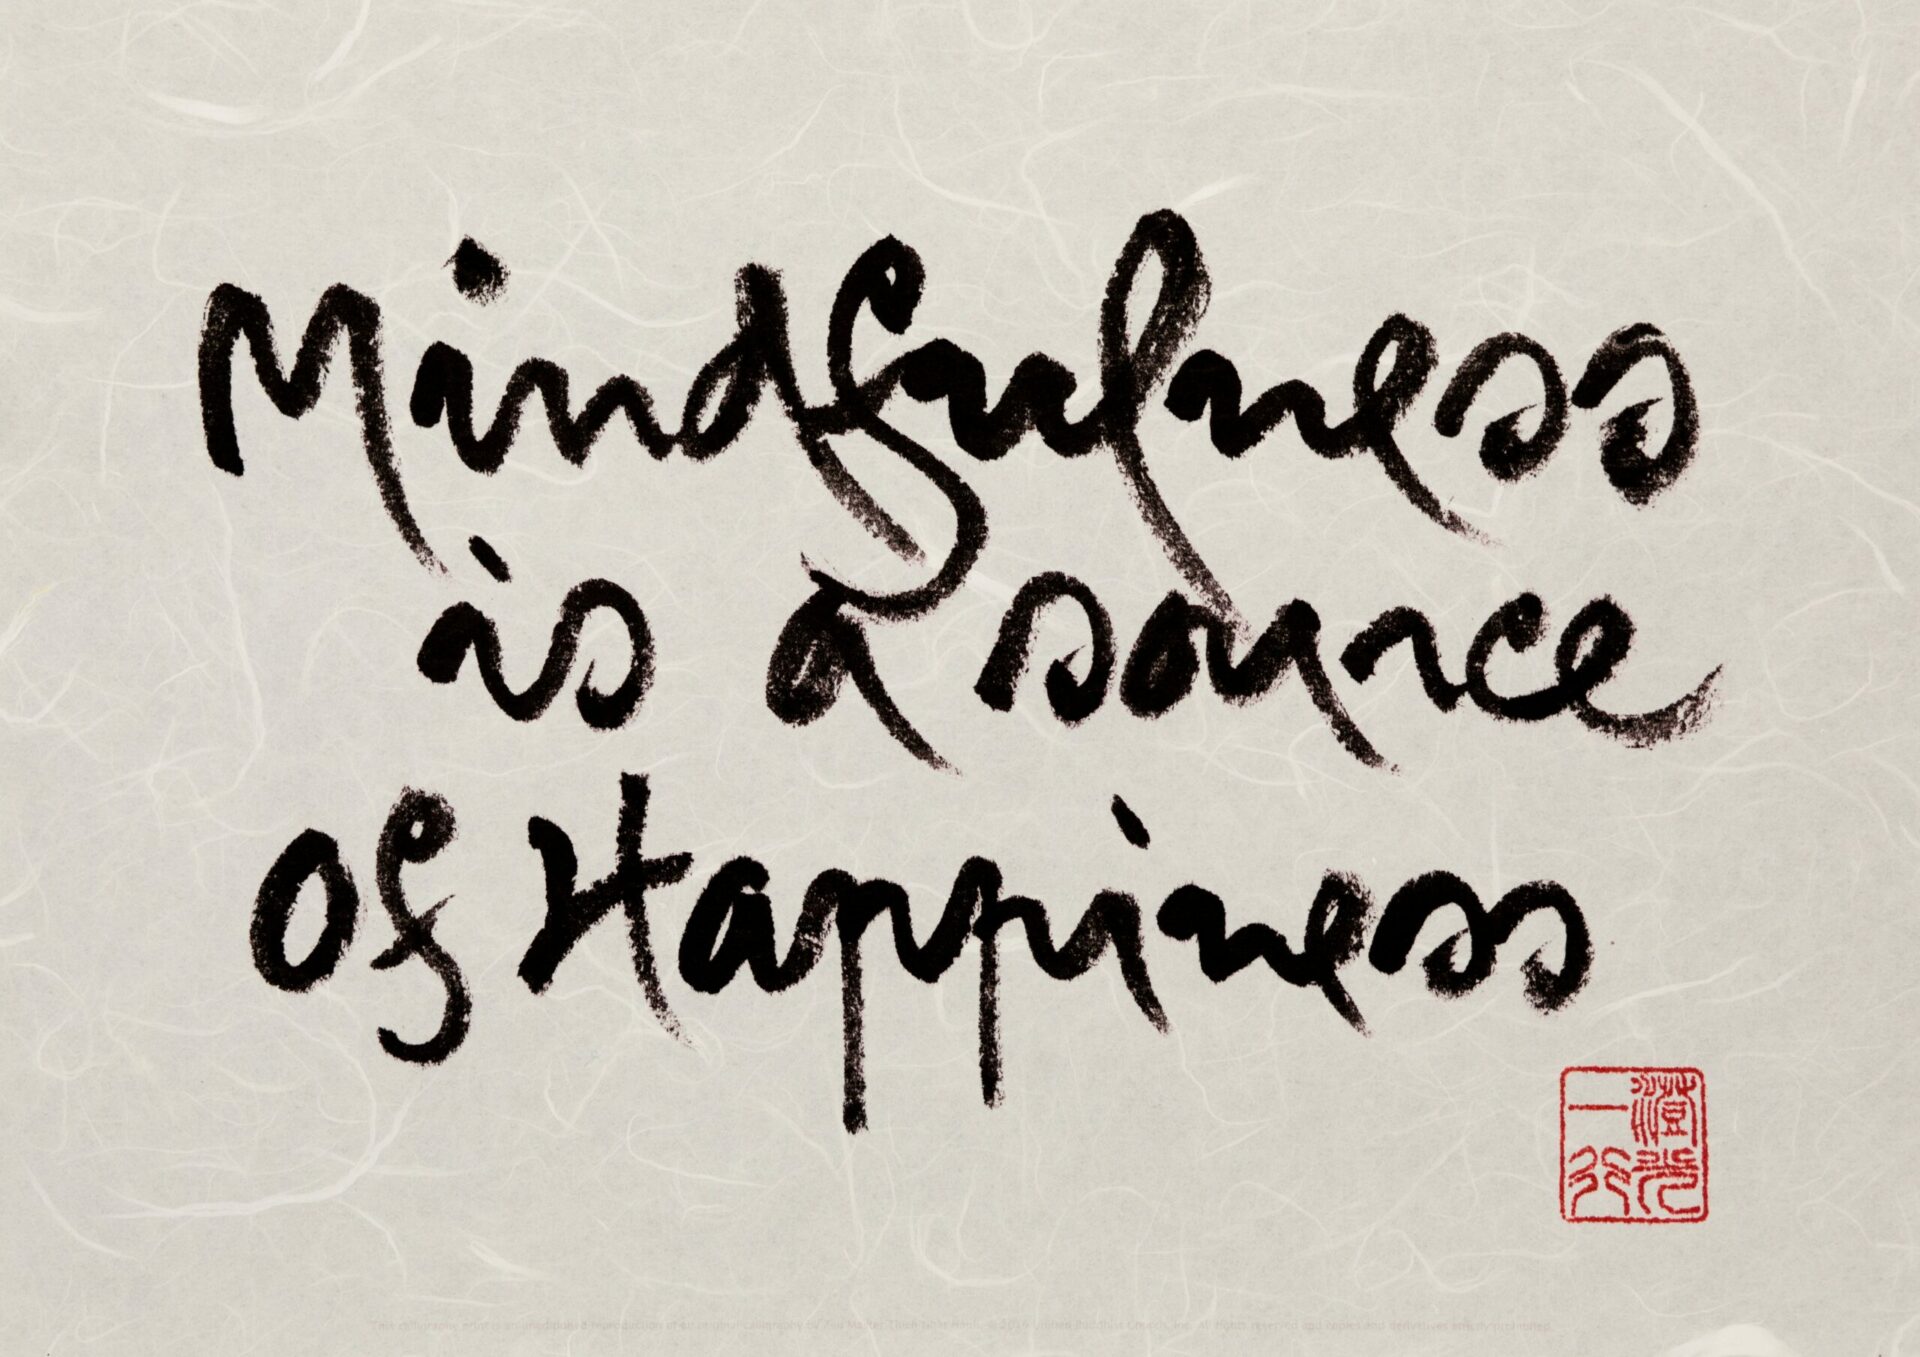 Mindfulness
is a source
of Happiness
澄光
一行
This calligraphy print is an unlimited reproduction of an original calligraphy by Zen Master Thich Nhat Hanh. © 2019 Unified Buddhist Church, Inc. All rights reserved and copies and derivatives strictly prohibited.